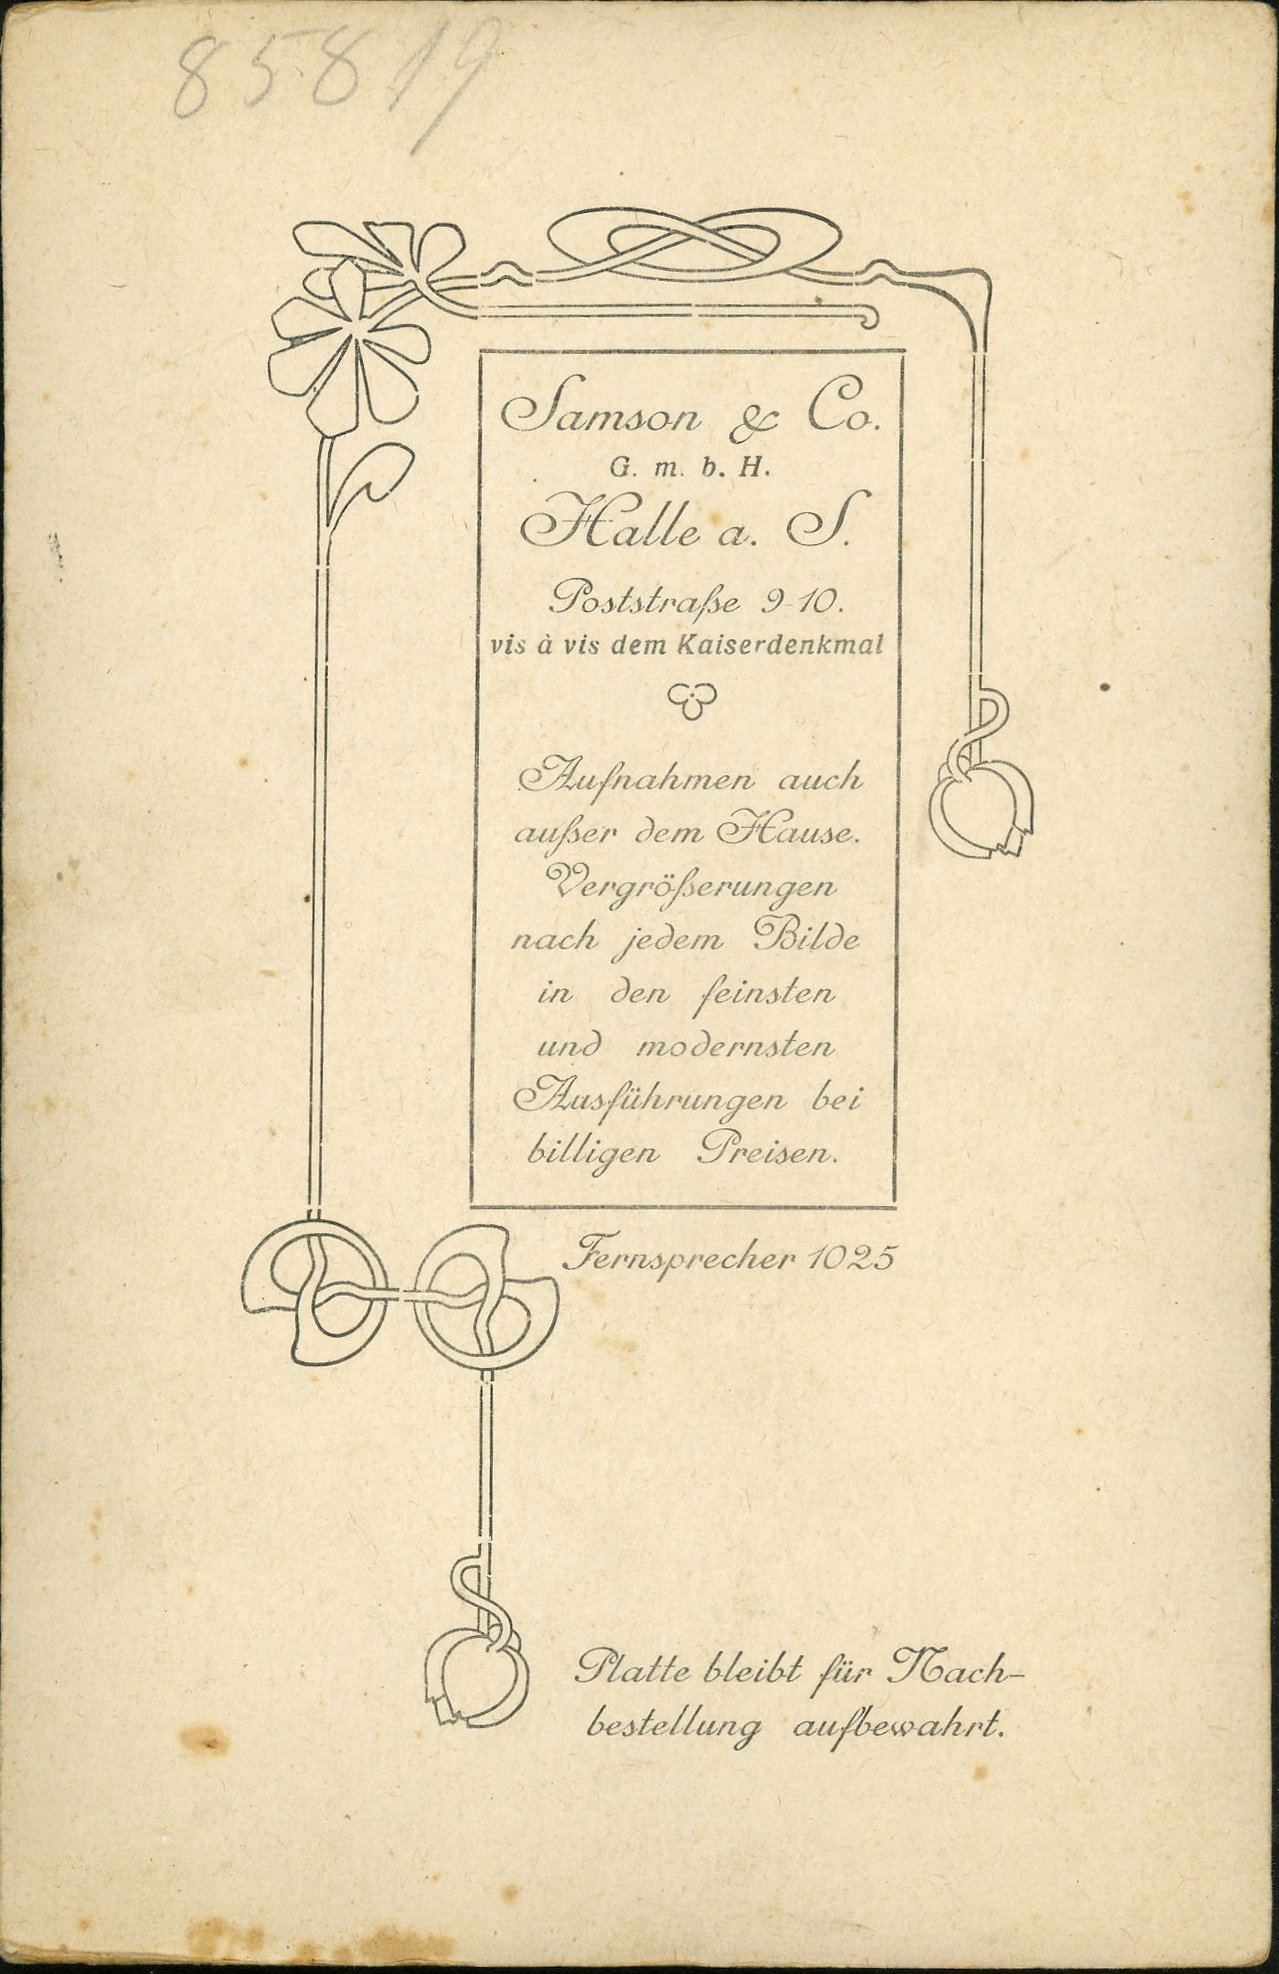 85819
Samson & Co.
G. m. b. H.
Halle a. S.
Poststraße 9-10.
vis à vis dem Kaiserdenkmal
Aufnahmen auch
außer dem Hause.
Vergrößerungen
nach jedem Bilde
in den feinsten
und modernsten
Ausführungen bei
billigen Preisen.
Fernsprecher 1025
Platte bleibt für Nach-
bestellung aufbewahrt.